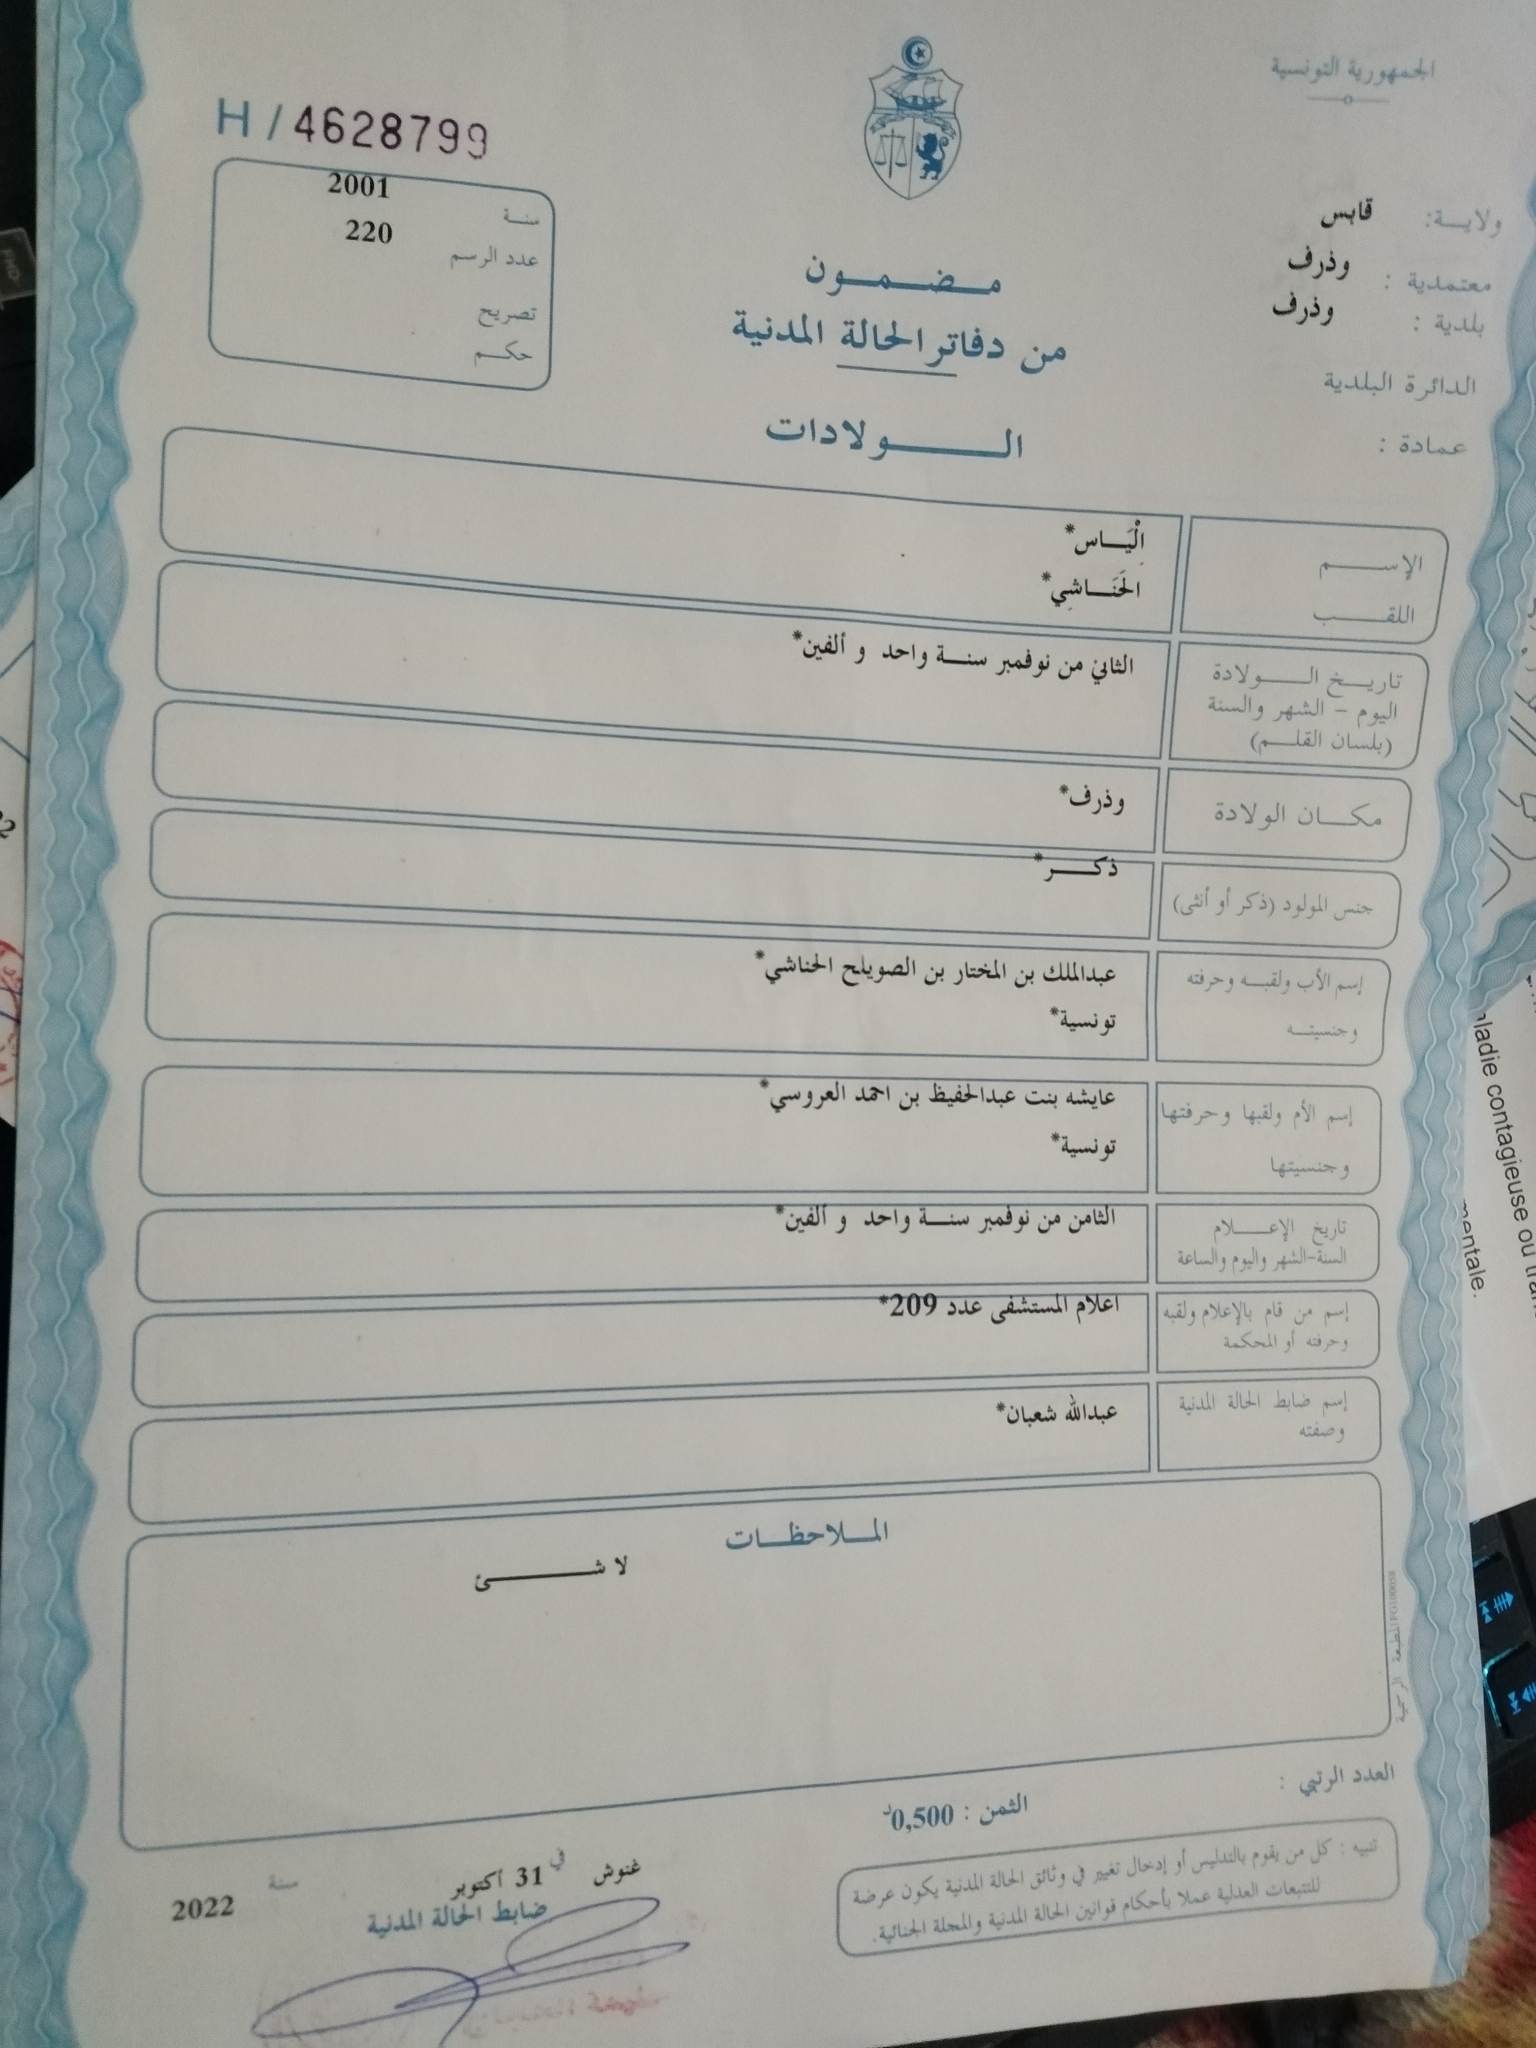 الجمهورية التونسية
H / 4628799
سنة 2001
عدد الرسم 220
تصريح
حكم
ولاية: قابس
معتمدية : وذرف
بلدية : وذرف
الدائرة البلدية
عمادة :
مضمون
من دفاتر الحالة المدنية
الولادات
الإسم
إلْيَاس*
اللقب
الحَنَاشِي*
تاريخ الولادة
اليوم - الشهر والسنة
(بلسان القلم)
الثاني من نوفمبر سنة واحد و ألفين*
مكان الولادة
وذرف*
جنس المولود (ذكر أو أنثى)
ذكر*
إسم الأب ولقبه وحرفته
وجنسيته
عبدالملك بن المختار بن الصويلح الحناشي*
تونسية*
إسم الأم ولقبها وحرفتها
وجنسيتها
عايشه بنت عبدالحفيظ بن احمد العروسي*
تونسية*
تاريخ الإعلام
السنة-الشهر واليوم والساعة
الثامن من نوفمبر سنة واحد و ألفين*
إسم من قام بالإعلام ولقبه
وحرفته أو المحكمة
اعلام المستشفى عدد 209*
إسم ضابط الحالة المدنية
وصفته
عبدالله شعبان*
الملاحظات
لا شئ
المطبعة الرسمية
العدد الرتبي :
الثمن : 0,500د
تنبيه : كل من يقوم بالتدليس أو إدخال تغيير في وثائق الحالة المدنية يكون عرضة
للتتبعات العدلية عملا بأحكام قوانين الحالة المدنية والمجلة الجنائية.
غنوش في 31 أكتوبر سنة 2022
ضابط الحالة المدنية
aladie contagieuse ou
mentale.